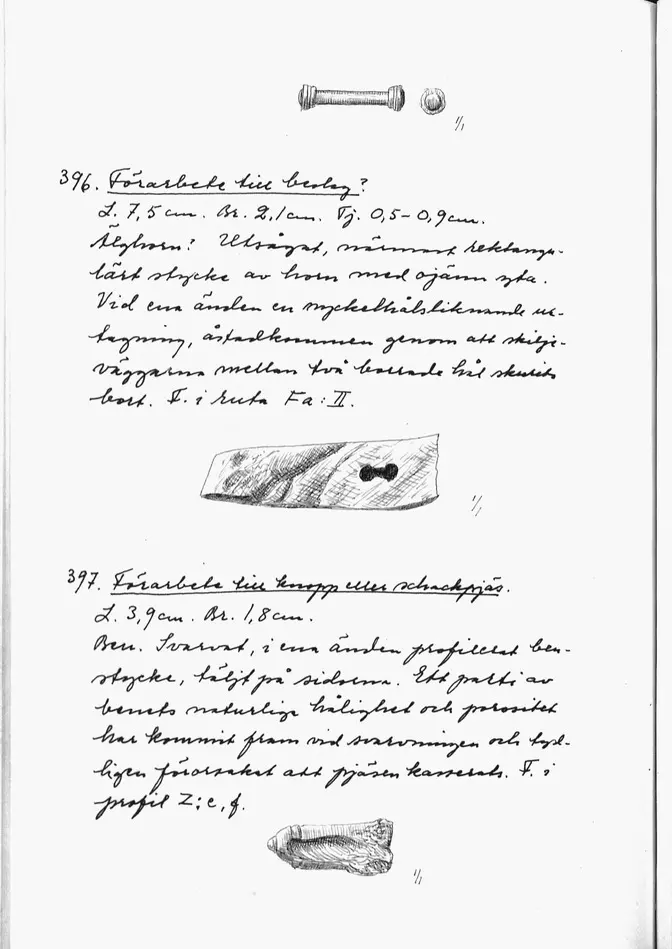 1/1
396. Förarbete till beslag?
L. 7,5 cm. Br. 2,1 cm. Tj. 0,5–0,9 cm.
Älghorn? Utsågat, närmast rektangu-
lärt stycke av horn med ojämn yta.
Vid ena änden en nyckelhålsliknande ur-
tagning, åstadkommen genom att skilje-
väggarna mellan två borrade hål skurits
bort. F. i ruta Fa: II.
1/1
397. Förarbete till knopp eller schackpjäs.
L. 3,9 cm. Br. 1,8 cm.
Ben. Svarvat, i ena änden profilerat ben-
stycke, täljt på sidorna. Ett parti av
benets naturliga hålighet och porositet
har kommit fram vid svarvningen och tyd-
ligen förorsakat att pjäsen kasserats. F. i
profil Z: e, f.
1/1